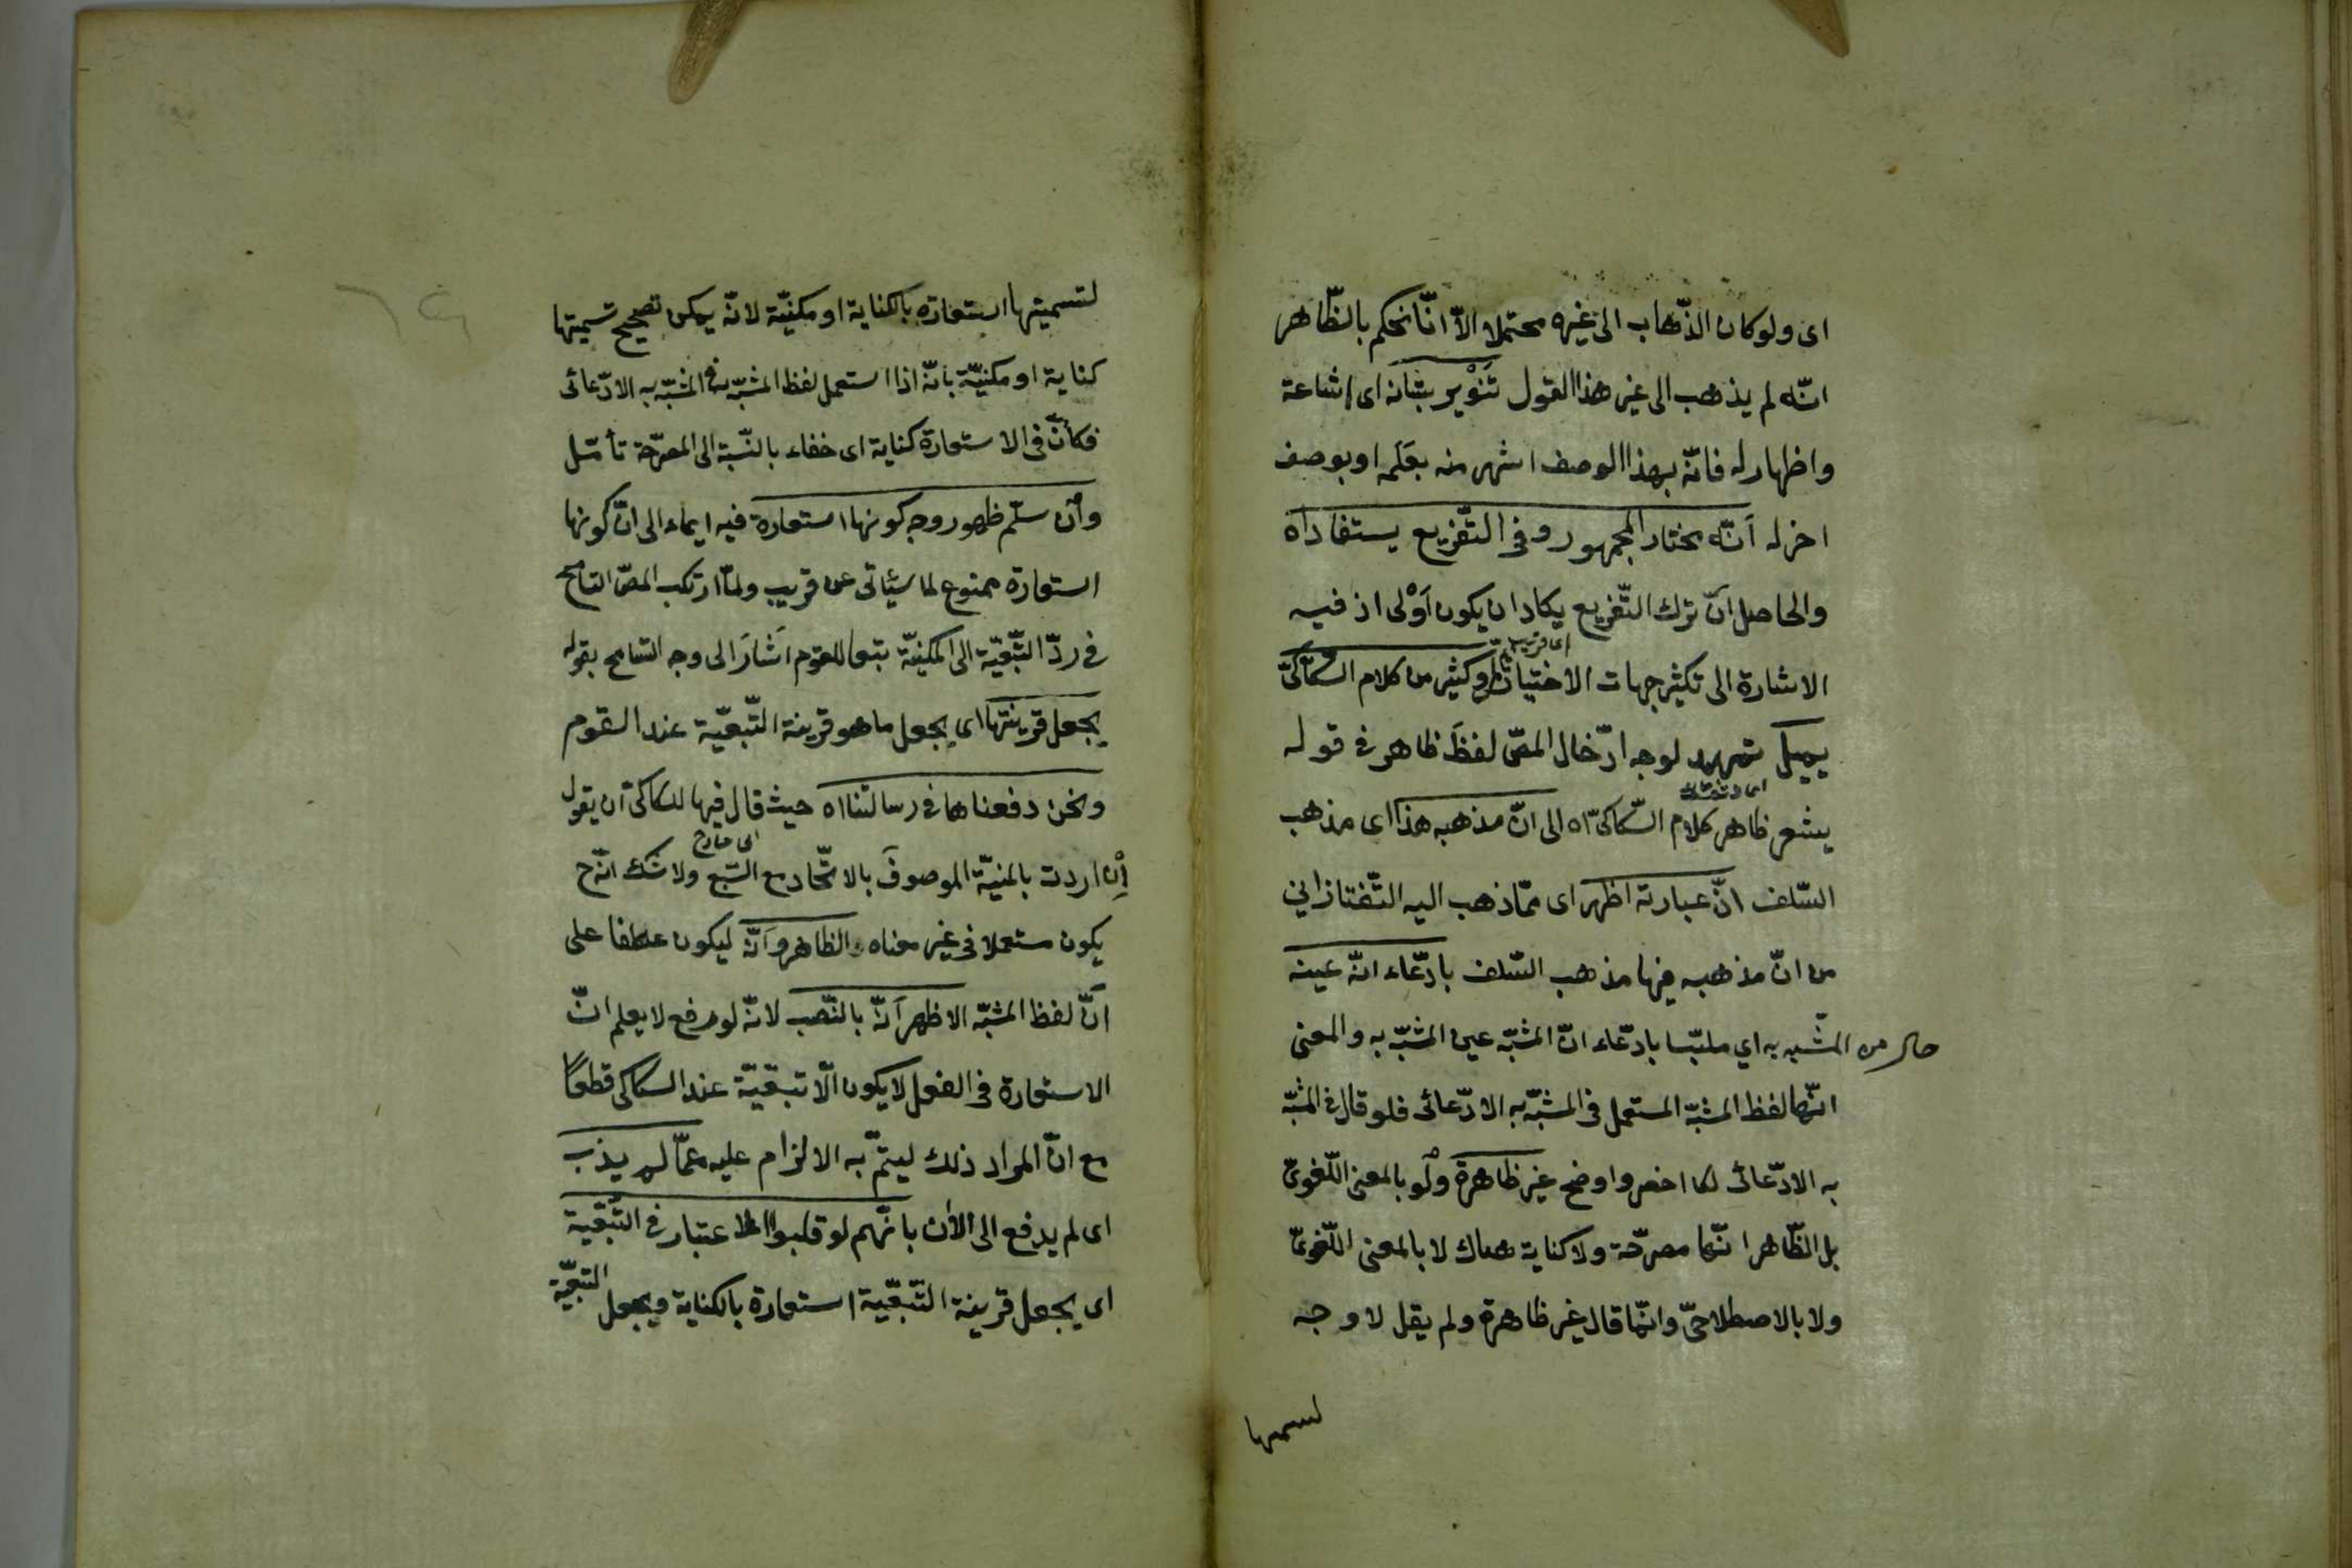 اى ولو كان الذّهاب الى غيره محتملا الاّ انّا نحكم بالظّاهر
انّه لم يذهب الى غير هذا القول تَنْوير بيّانه اى اشاعة
واظهار له فانّه بهذا الوصف اشهر منه بعَلَمه او بوصف
اخر له اَنّه مختار الجمهور وفى التّفريع يستفاد اه
والحاصل انّ ترك التّفريع يكاد ان يكون اَوْلى اذ فيه
الاشارة الى تكثير جهات الاختيار وكثير من كلام السّكّاكىّ
يميل تمهيد لوجه ادّخال المصّ لفظَ ظاهر فى قوله
يشعر ظاهر كلام السّكاكىّ اه الى انّ مذهبه هذا اى مذهب
السّلف انّ عبارته اظهر اى ممّا ذهب اليه التّفتازانى
من انّ مذهبه فيها مذهب السّلف بادّعاء انّه عينه
حال من المشّبه به اي ملبّسا بادّعاء انّ المشبّه عين المشبّه به والمعنى
انّها لفظ المشبّه المستعمل فى المشبّه به الادّعائى فلو قال فى المشبّه
به الادّعائى لكا اخصر واوضح غير ظاهرة ولو بالمعنى اللّغوىّ
بل الظّاهر انّها مصرّحة ولا كناية هناك لا بالمعنى اللّغوىّ
ولا بالاصطلاحىّ وانّما قال غير ظاهرة ولم يقل لا وجه
لتسميتها
لتسميتها استعارة بالكناية او مكنيّة لانّه يمكن تصحيح تسميتها
كناية او مكنيّة بانّه اذا استعمل لفظ المشبّه فى المشبّه به الادّعائى
فكأنّ فى الاستعارة كناية اى خفاء بالنّسبة الى المصرّحة تأمّل
وان سلّم ظهور وجه كونها استعارة فيه ايماء الى انّ كونها
استعارة ممنوع لما سيأتى عن قريب ولمّا ارتكب المصّ التسامح
فى ردّ التّبعيّة الى المكنيّة تبعا للقوم اَشارَ الى وجه التسامح بقوله
بجعل قرينتها اى بجعل ما هو قرينة التّبعيّة عند القوم
ونحن دفعناهما فى رسالتنا اه حيث قال فيها للسكاكى ان يقول
اِن اردت بالمنيّة الموصوفَ بالاتّحاد مع السّبع ولا شك انّه ح
يكون مستعملا فى غير معناه والظاهر وَانّه ليكون عطفا على
اَنّ لفظ المشبّه الاظهر اَنّه بالنّصب لانّه لو رفع لا يعلم انّ
الاستعارة فى الفعل لا يكون الّا تبعيّة عند السكاكى قطعاً
مع انّ المراد ذلك ليتمّ به الالزام عليه ممّا لم يذب
اى لم يدفع الى الأن بانّهم لو قلبوا الاعتبار فى التّبعيّة
اى يجعل قرينة التّبعيّة استعارة بالكناية ويجعل التبعيّة